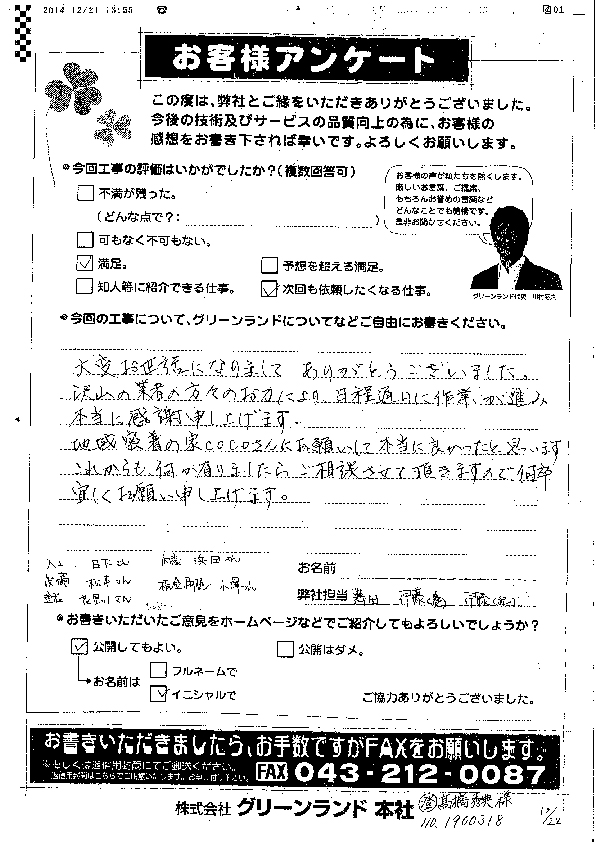 2014 12/21 13:55
お客様アンケート
この度は、弊社とご縁をいただきありがとうございました。
今後の技術及びサービスの品質向上の為に、お客様の
感想をお書き下されば幸いです。よろしくお願いします。
今回工事の評価はいかがでしたか？(複数回答可)
不満が残った。
(どんな点で？: )
可もなく不可もない。
満足。
予想を超える満足。
知人等に紹介できる仕事。
次回も依頼したくなる仕事。
お客様の声が私たちを熱くします。
厳しいお言葉、ご提案、
もちろんお誉めの言葉など
どんなことでも結構です。
是非お聞かせください。
グリーンランド代表
今回の工事について、グリーンランドについてなどご自由にお書きください。
大変お世話になりまして ありがとうございました。
沢山の業者の方々のお力により、日程通りに作業が進み
本当に感謝申し上げます。
地域密着の家cocoさんにお願いして本当に良かったと思います
これからも、何か有りましたらご相談させて頂きますので何卒
宜しくお願い申し上げます。
お名前
弊社担当
お書きいただいたご意見をホームページなどでご紹介してもよろしいでしょうか？
公開してもよい。
公開はダメ。
お名前は
フルネームで
イニシャルで
ご協力ありがとうございました。
お書きいただきましたら、お手数ですがFAXをお願いします。
※もしくは返信用封筒にてご郵送ください。
FAX 043-212-0087
株式会社 グリーンランド 本社
NO. 1900318
12/22